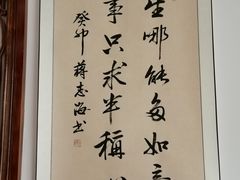 生哪能多如意
事只求半称
癸卯 蒋志海书